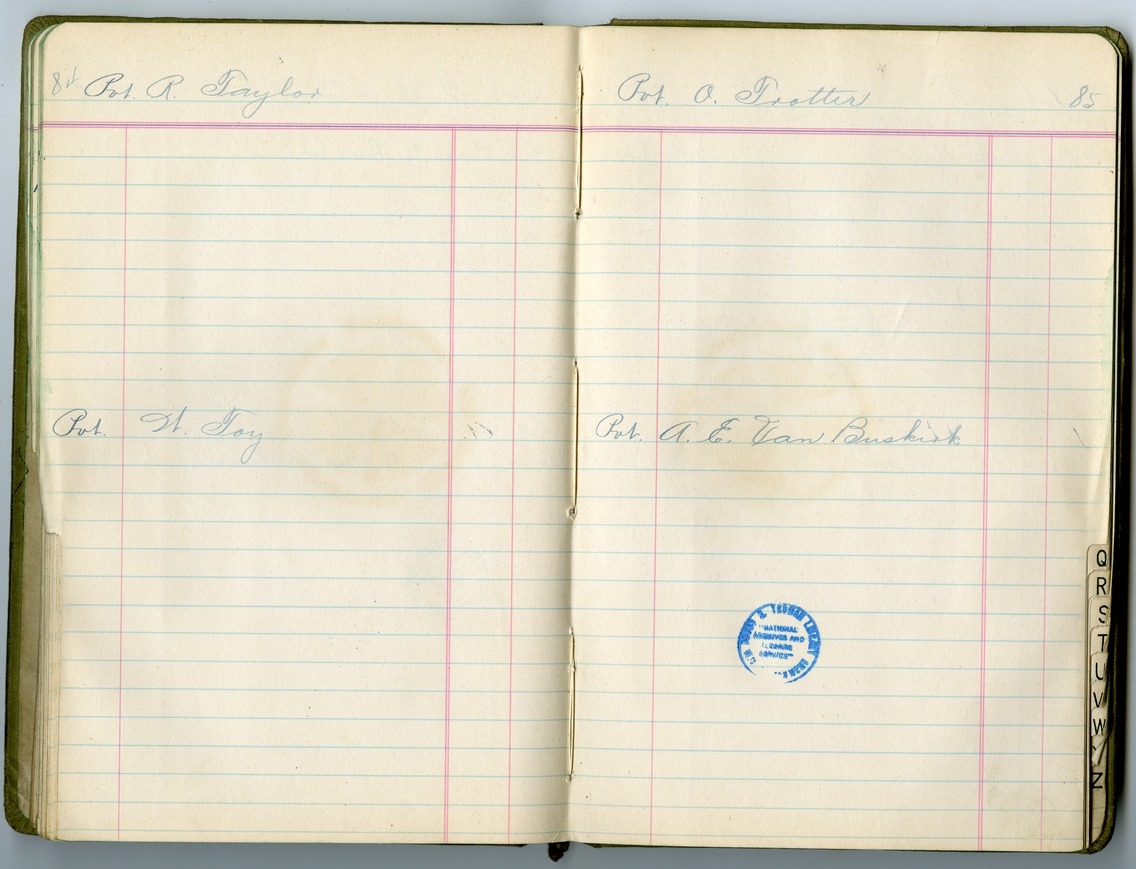 84 Pvt. R. Taylor
Pvt. W. Toy
Pvt. O. Trotter 85
Pvt. A. E. Van Buskirk
HARRY S. TRUMAN LIBRARY
NATIONAL
ARCHIVES AND
RECORDS
SERVICE
Q
R
S
T
U
V
W
Z